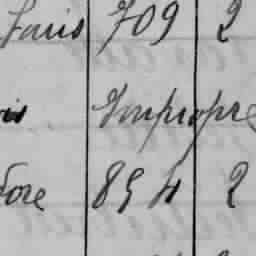 Paris 709 2
is Impropre
fore 854 2